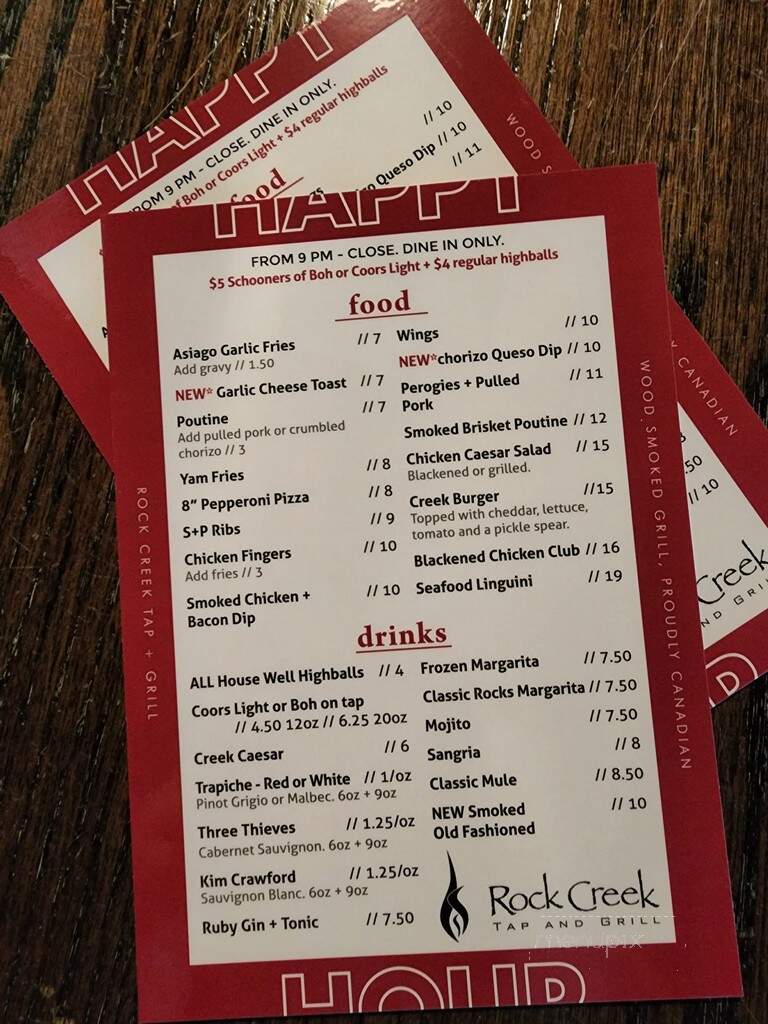 HAPPY
FROM 9 PM - CLOSE. DINE IN ONLY.
of Boh or Coors Light + $4 regular highballs
food
// 10
Queso Dip // 10
// 11
WOOD S
CANADIAN
.50
// 10
Creek
ND GRIL
HAPPY
FROM 9 PM - CLOSE. DINE IN ONLY.
$5 Schooners of Boh or Coors Light + $4 regular highballs
food
Asiago Garlic Fries // 7
Add gravy // 1.50
NEW* Garlic Cheese Toast // 7
Poutine // 7
Add pulled pork or crumbled
chorizo // 3
Yam Fries // 8
8" Pepperoni Pizza // 8
S+P Ribs // 9
Chicken Fingers // 10
Add fries // 3
Smoked Chicken + // 10
Bacon Dip
Wings // 10
NEW*chorizo Queso Dip // 10
Perogies + Pulled // 11
Pork
Smoked Brisket Poutine // 12
Chicken Caesar Salad // 15
Blackened or grilled.
Creek Burger //15
Topped with cheddar, lettuce,
tomato and a pickle spear.
Blackened Chicken Club // 16
Seafood Linguini // 19
drinks
ALL House Well Highballs // 4
Coors Light or Boh on tap
// 4.50 12oz // 6.25 20oz
Creek Caesar // 6
Trapiche - Red or White // 1/oz
Pinot Grigio or Malbec. 6oz + 9oz
Three Thieves // 1.25/oz
Cabernet Sauvignon. 6oz + 9oz
Kim Crawford // 1.25/oz
Sauvignon Blanc. 6oz + 9oz
Ruby Gin + Tonic // 7.50
Frozen Margarita // 7.50
Classic Rocks Margarita // 7.50
Mojito // 7.50
Sangria // 8
Classic Mule // 8.50
NEW Smoked // 10
Old Fashioned
Rock Creek
TAP AND GRILL
HOUR
ROCK CREEK TAP + GRILL
WOOD SMOKED GRILL, PROUDLY CANADIAN